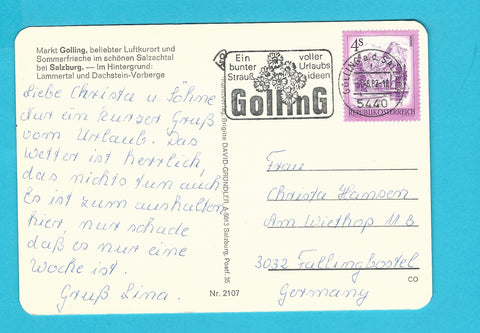 Markt Golling, beliebter Luftkurort und
Sommerfrische im schönen Salzachtal
bei Salzburg. — Im Hintergrund:
Lammertal und Dachstein-Vorberge
Liebe Christa u. Söhne
Nur ein kurzer Gruß
vom Urlaub. Das
Wetter ist herrlich,
das nichts tun auch.
Es ist zum aushalten
hier, nur schade
daß es nur eine
Woche ist.
Gruß Lina.
Brigitte DAVID-GRÜNDLER, A-5013 Salzburg, Postf. 35
Nr. 2107
Ein
bunter
Strauß
voller
Urlaubs
ideen
Golling
4S
REPUBLIK ÖSTERREICH
GOLLING a. d.
5440
Frau
Christa Hansen
Am Wiethop 11 B
3032 Fallingbostel
Germany
CO